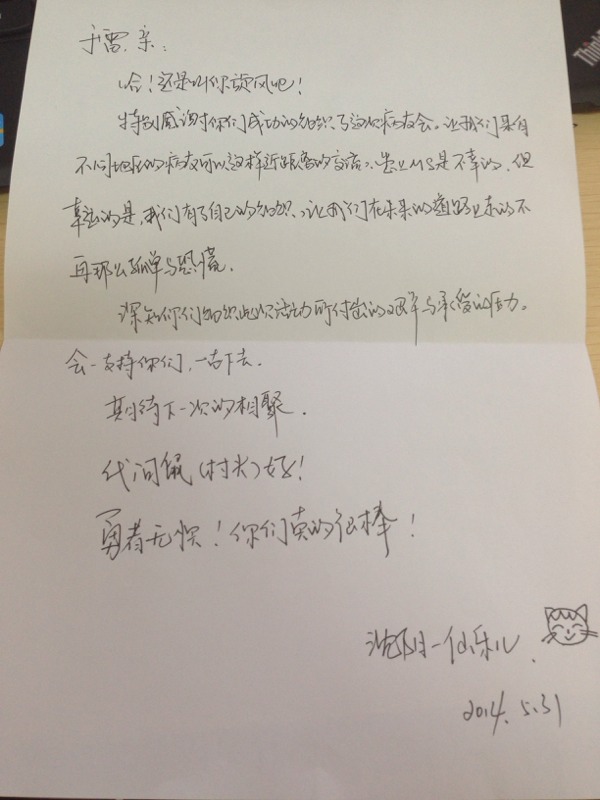 于雷.亲:
哈!还是叫你旋风吧!
特别感谢你们成功的组织了这次病友会。让我们来自
不同地区的病友可以这样近距离的交流、患上MS是不幸的,但
幸运的是,我们有了自己的组织、让我们在未来的道路上走的不
再那么孤单与恐慌.
深知你们组织此次活动所付出的艰辛与承受的压力。
会一支持你们,一古下去.
期待下一次的相聚.
代问鼠(村长)好!
勇者无惧!你们真的很棒!
沈阳-仙乐儿.
2014.5.31
Think